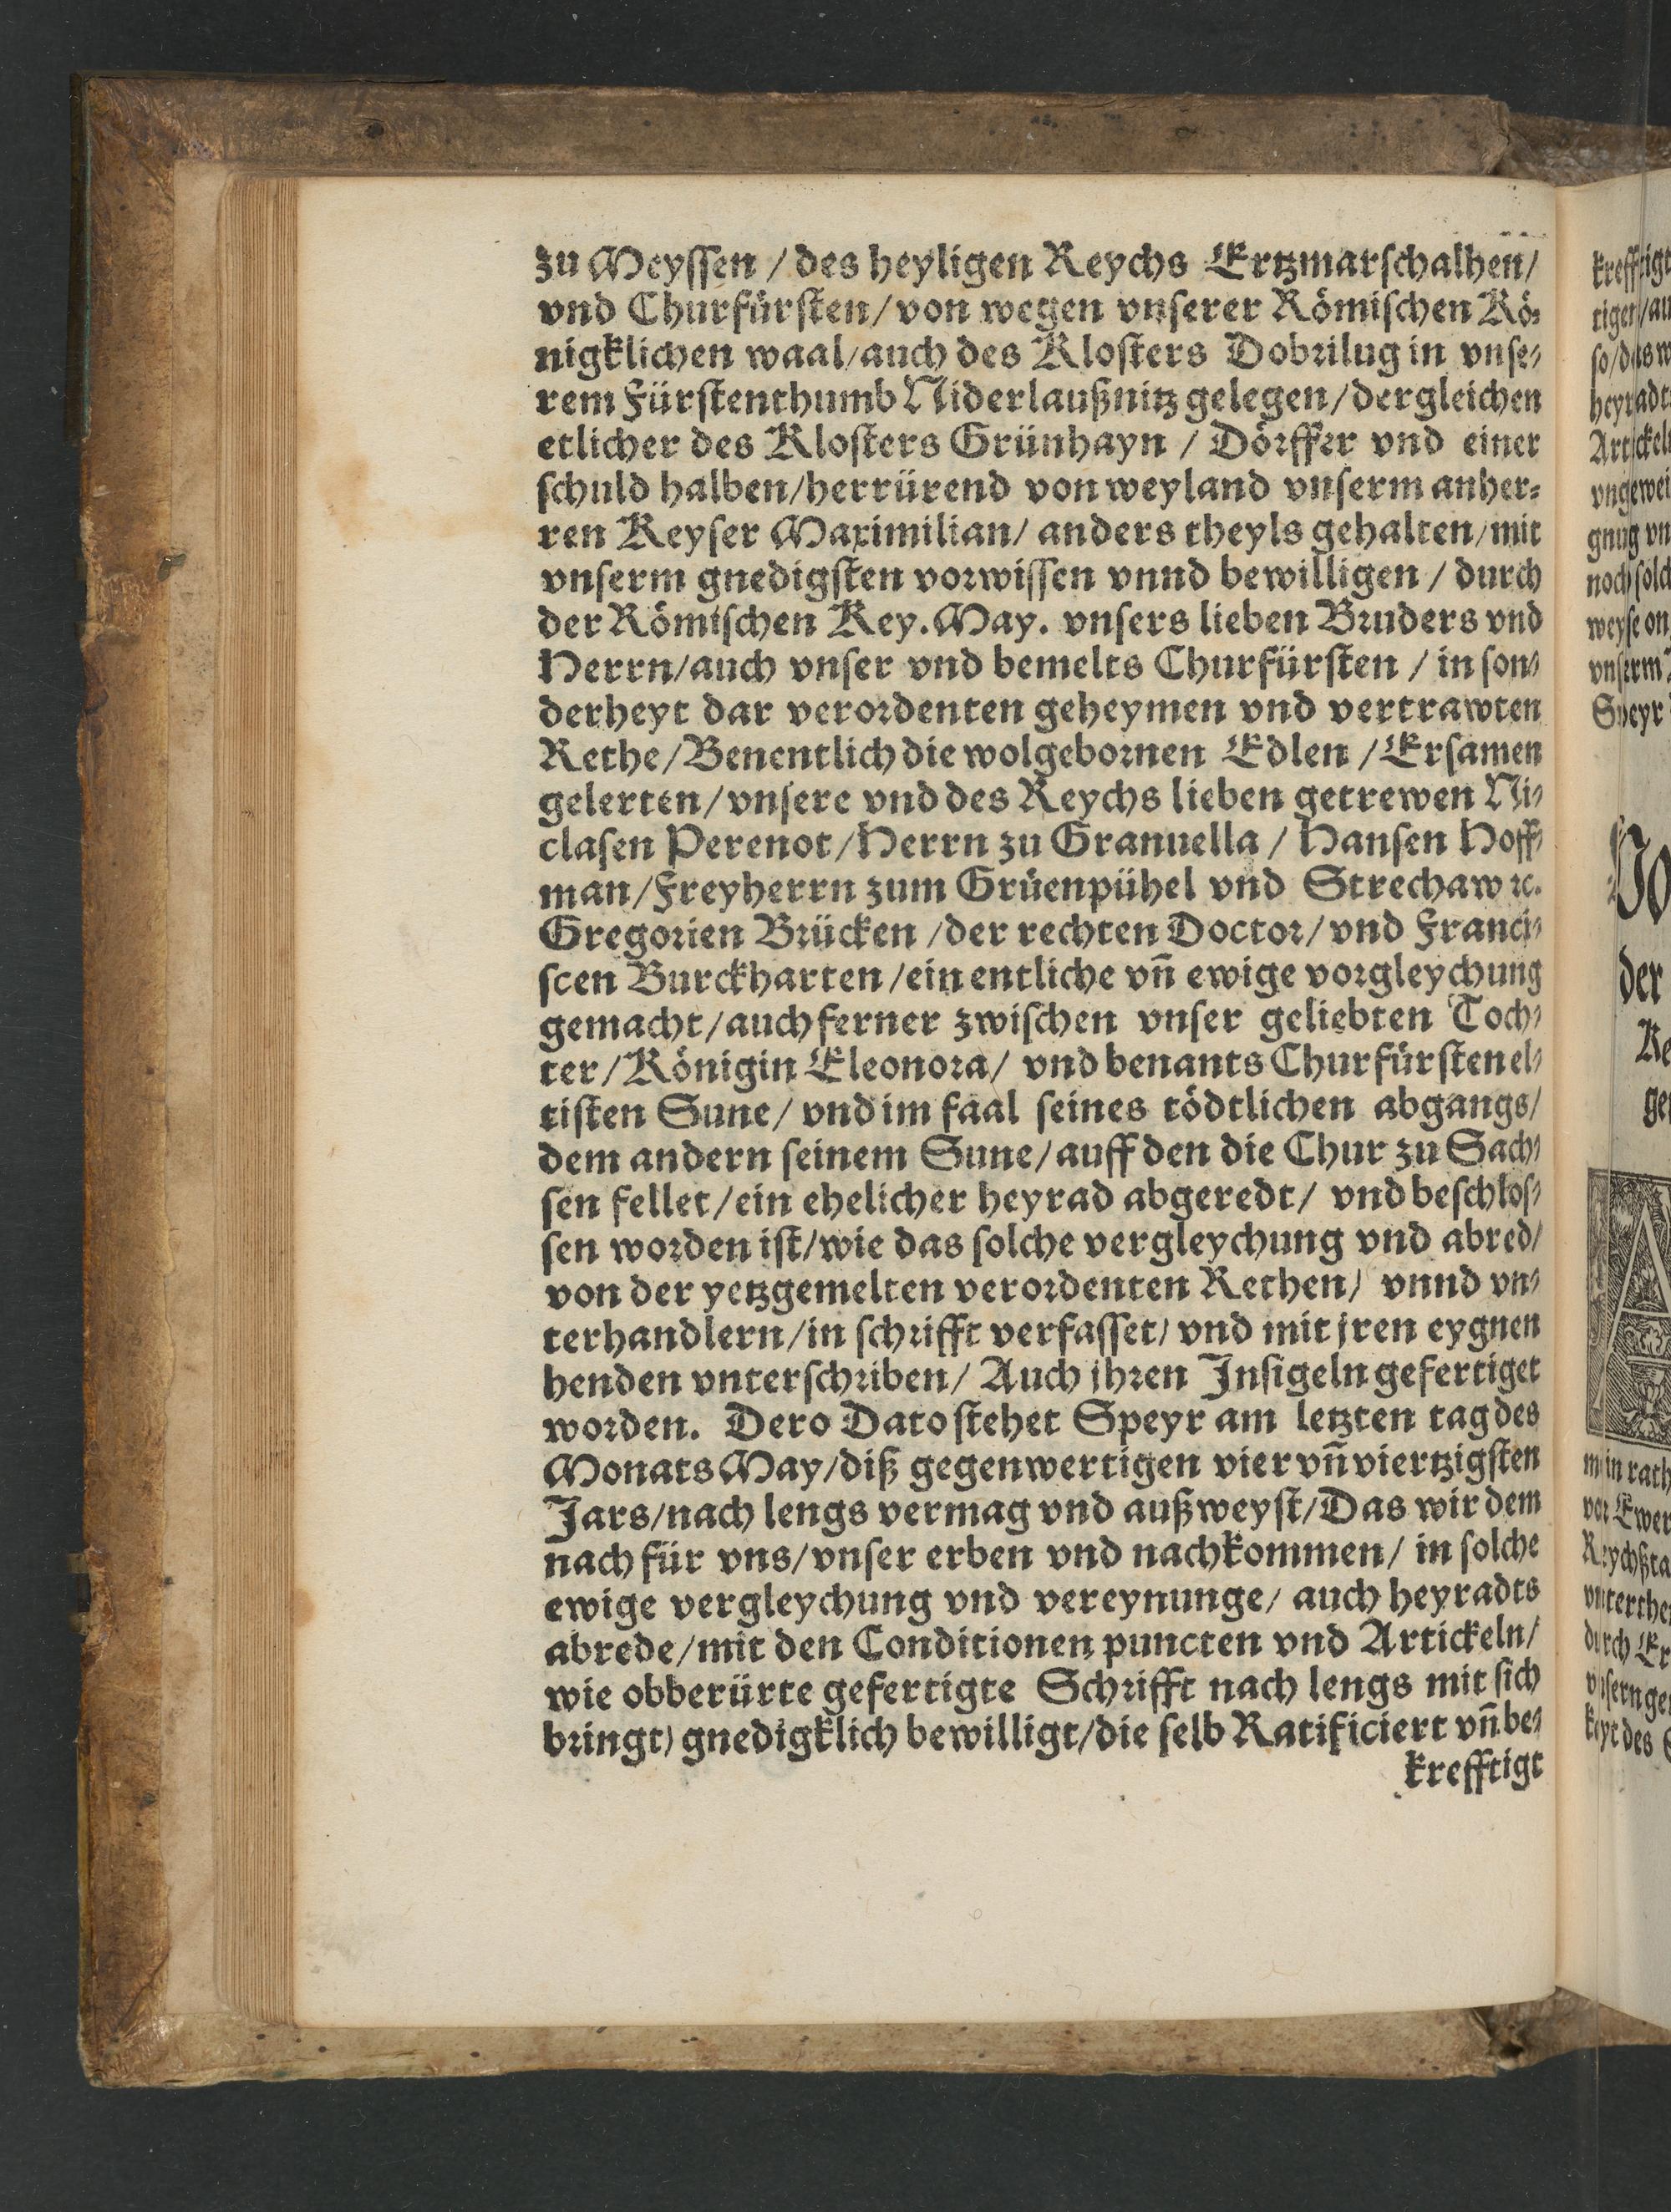 zu Meyssen / des heyligen Reychs Ertzmarschalhen/
vnd Churfürsten/ von wegen vnserer Römischen Rö⸗
nigklichen waal/ auch des Klosters Dobrilug in vnse⸗
rem Fürstenthumb Niderlaußnitz gelegen/ dergleichen
etlicher des Klosters Grünhayn / Dörffer vnd einer
schuld halben/herrürend von weyland vnserm anher⸗
ren Keyser Maximilian/ anders theyls gehalten/ mit
vnserm gnedigsten vorwissen vnnd bewilligen / durch
der Römischen Key. May. vnsers lieben Bruders vnd
Herrn/auch vnser vnd bemelts Churfürsten / in son⸗
derheyt dar verordenten geheymen vnd vertrawten
Rethe/ Benentlich die wolgebornen Edlen / Ersamen
gelerten/ vnsere vnd des Reychs lieben getrewen Ni⸗
clasen Perenot/Herrn zu Granuella / Hansen Hoff⸗
man/Freyherrn zum Grüenpühel vnd Strechaw ꝛc.
Gregorien Brücken /der rechten Doctor/ vnd Franci⸗
scen Burckharten /ein entliche vn̄ ewige vorgleychung
gemacht/auch ferner zwischen vnser geliebten Toch⸗
ter/Königin Eleonora/ vnd benants Churfürsten el⸗
tisten Sune/ vnd im faal seines tödtlichen abgangs/
dem andern seinem Sune/auff den die Chur zu Sach⸗
sen fellet/ein ehelicher heyrad abgeredt/ vnd beschlos⸗
sen worden ist/wie das solche vergleychung vnd abred/
von der yetzgemelten verordenten Rethen/ vnnd vn⸗
terhandlern/in schrifft verfasset/ vnd mit jren eygnen
henden vnterschriben/ Auch jhren Insigeln gefertiget
worden. Dero Dato stehet Speyr am letzten tag des
Monats May/diß gegenwertigen vier vn̄ viertzigsten
Jars/nach lengs vermag vnd außweyst/Das wir dem
nach für vns/vnser erben vnd nachkommen/ in solche
ewige vergleychung vnd vereynunge/ auch heyradts
abrede/mit den Conditionen puncten vnd Artickeln/
wie obberürte gefertigte Schrifft nach lengs mit sich
bringt) gnedigklich bewilligt/die selb Ratificiert vn̄ be⸗
krefftigt
krefftigt
tigen/au
so/das w
heyradt
Artickel
vngewei
gnug vn
noch solch
weyse on
vnserm
Speyr
No
der
Ke
ge
A
min rath
vor Ewer
Reychßta
vnterthe
durch Er
vnsern ge
keyt des